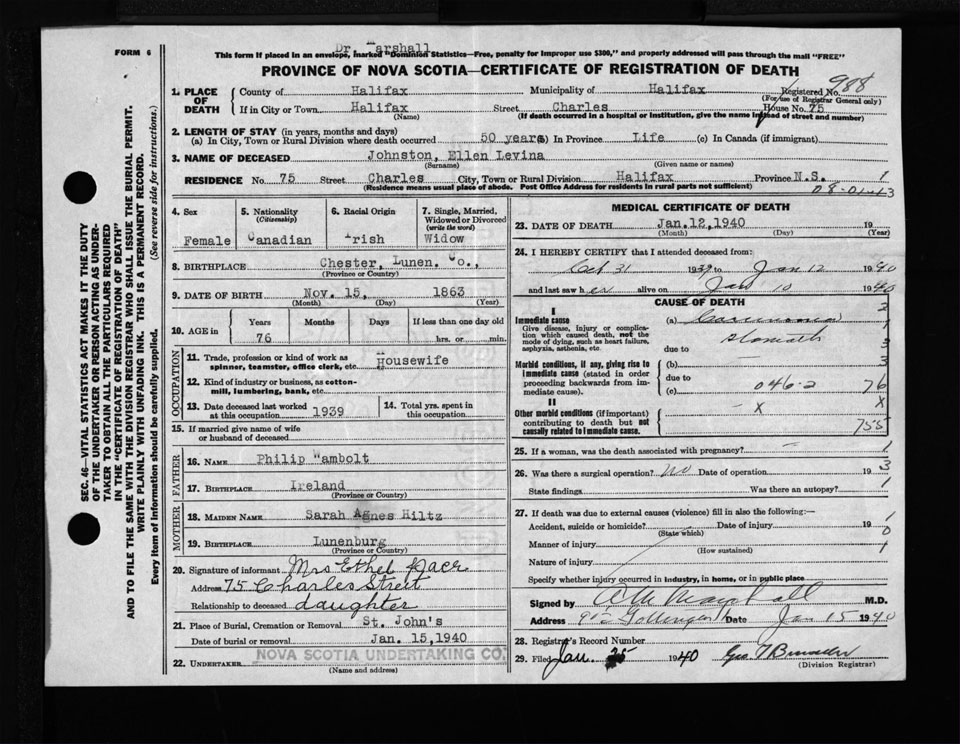 FORM 6
Dr. Marshall
This form if placed in an envelope, marked "Dominion Statistics—Free, penalty for improper use $300," and properly addressed will pass through the mail "FREE"
PROVINCE OF NOVA SCOTIA—CERTIFICATE OF REGISTRATION OF DEATH
SEC. 46—VITAL STATISTICS ACT MAKES IT THE DUTY
OF THE UNDERTAKER OR PERSON ACTING AS UNDERTAKER TO OBTAIN ALL THE PARTICULARS REQUIRED
IN THE "CERTIFICATE OF REGISTRATION OF DEATH"
AND TO FILE THE SAME WITH THE DIVISION REGISTRAR WHO SHALL ISSUE THE BURIAL PERMIT.
WRITE PLAINLY WITH UNFADING INK. THIS IS A PERMANENT RECORD.
Every item of information should be carefully supplied. (See reverse side for instructions.)
1. PLACE OF DEATH
County of Halifax Municipality of Halifax Registered No. 988
(For use of Registrar General only)
If in City or Town Halifax Street Charles House No. 75
(Name) (If death occurred in a hospital or institution, give the name instead of street and number)
2. LENGTH OF STAY (in years, months and days)
(a) In City, Town or Rural Division where death occurred 50 years (b) In Province Life (c) In Canada (if immigrant)
3. NAME OF DECEASED Johnston, Ellen Levina
(Surname) (Given name or names)
RESIDENCE No. 75 Street Charles City, Town or Rural Division Halifax Province N.S. 1
(Residence means usual place of abode. Post Office Address for residents in rural parts not sufficient)
08-01-13
4. Sex Female
5. Nationality (Citizenship) Canadian
6. Racial Origin Irish
7. Single, Married, Widowed or Divorced (write the word) Widow
8. BIRTHPLACE Chester, Lunen. Co.,
(Province or Country)
9. DATE OF BIRTH Nov. 15, 1863
(Month) (Day) (Year)
10. AGE in Years Months Days If less than one day old
76 hrs. or min.
OCCUPATION
11. Trade, profession or kind of work as spinner, teamster, office clerk, etc. Housewife
12. Kind of industry or business, as cotton-mill, lumbering, bank, etc.
13. Date deceased last worked at this occupation 1939
14. Total yrs. spent in this occupation
15. If married give name of wife or husband of deceased
FATHER
16. NAME Philip Wambolt
17. BIRTHPLACE Ireland
(Province or Country)
MOTHER
18. MAIDEN NAME Sarah Agnes Hiltz
19. BIRTHPLACE Lunenburg
(Province or Country)
20. Signature of informant Mrs Ethel
Address 75 Charles Street
Relationship to deceased daughter
21. Place of Burial, Cremation or Removal St. John's
Date of burial or removal Jan. 15, 1940
22. UNDERTAKER NOVA SCOTIA UNDERTAKING CO.
(Name and address)
MEDICAL CERTIFICATE OF DEATH
23. DATE OF DEATH Jan. 12, 1940 19
(Month) (Day) (Year)
24. I HEREBY CERTIFY that I attended deceased from:
Oct 31 1939 to Jan 12 1940
and last saw her alive on Jan 10 1940
CAUSE OF DEATH
I
Immediate cause
Give disease, injury or complication which caused death, not the mode of dying, such as heart failure, asphyxia, asthenia, etc.
(a) Carcinoma
stomach
due to
Morbid conditions, if any, giving rise to immediate cause (stated in order proceeding backwards from immediate cause).
(b)
due to
(c) 046-2 76
II
Other morbid conditions (if important) contributing to death but not causally related to immediate cause.
- X X
755
25. If a woman, was the death associated with pregnancy? – 1
26. Was there a surgical operation? No Date of operation 19 3
State findings Was there an autopsy? 1
27. If death was due to external causes (violence) fill in also the following:—
Accident, suicide or homicide? Date of injury 19
(State which)
Manner of injury
(How sustained)
Nature of injury
Specify whether injury occurred in industry, in home, or in public place
Signed by Marshall M.D.
Address Date Jan 15 1940
28. Registrar's Record Number
29. Filed Jan. 1940 Geo
(Division Registrar)